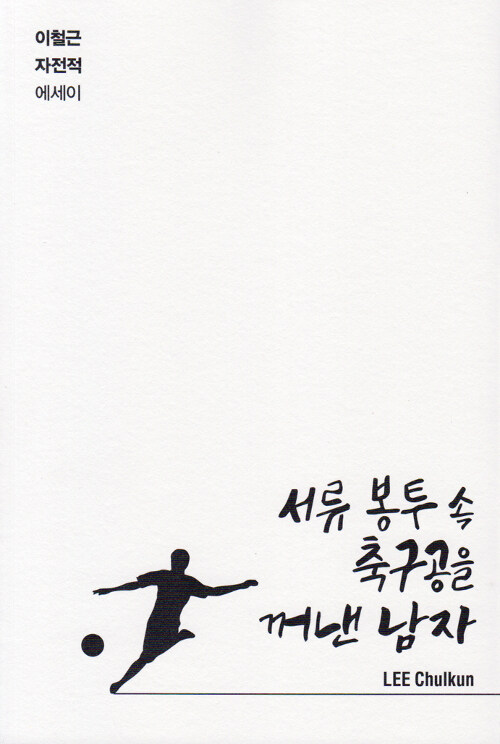 이철근
자전적
에세이
서류 봉투 속
축구공을
꺼낸 남자
LEE Chulkun